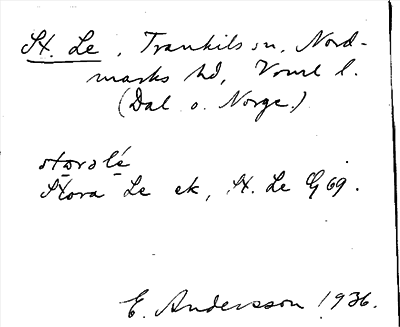 St. Le, Trankils sn, Nord-
marks hd, Vrml l.
(Dal o. Norge.)
storəlé
Stora Le ek, St. Le G 69.
E. Andersson 1936.